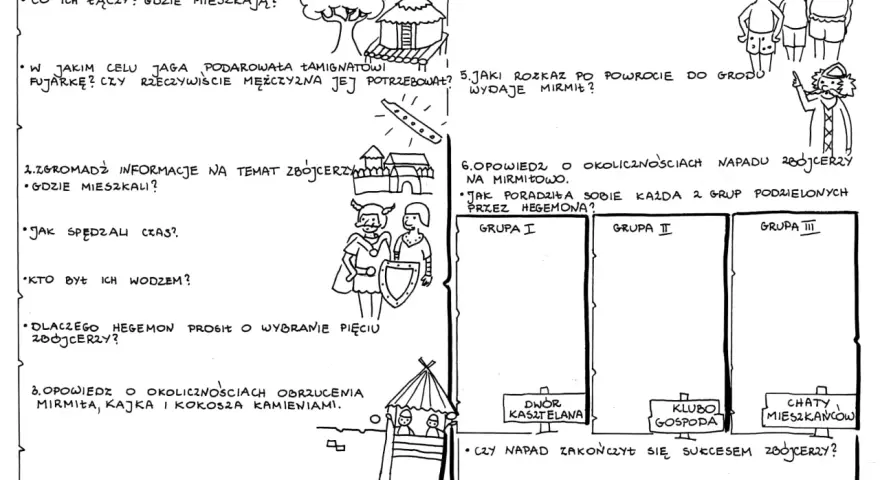 • CO ICH ŁĄCZY? GDZIE MIESZKAJĄ?
• W JAKIM CELU JAGA PODAROWAŁA ŁAMIGNATOWI
FUJARKĘ? CZY RZECZYWIŚCIE MĘŻCZYZNA JEJ POTRZEBOWAŁ?
2.ZGROMADŹ INFORMACJE NA TEMAT ZBÓJCERZY
• GDZIE MIESZKALI?
• JAK SPĘDZALI CZAS?
• KTO BYŁ ICH WODZEM?
• DLACZEGO HEGEMON PROSIŁ O WYBRANIE PIĘCIU
ZBÓJCERZY?
3.OPOWIEDZ O OKOLICZNOŚCIACH OBRZUCENIA
MIRMIŁA, KAJKA I KOKOSZA KAMIENIAMI.
5.JAKI ROZKAZ PO POWROCIE DO GRODU
WYDAJE MIRMIŁ?
6.OPOWIEDZ O OKOLICZNOŚCIACH NAPADU ZBÓJCERZY
NA MIRMIŁOWO.
• JAK PORADZIŁA SOBIE KAŻDA Z GRUP PODZIELONYCH
PRZEZ HEGEMONA?
GRUPA I
GRUPA II
GRUPA III
DWÓR
KASZTELANA
KLUBO
GOSPODA
CHATY
MIESZKAŃCÓW
• CZY NAPAD ZAKOŃCZYŁ SIĘ SUKCESEM ZBÓJCERZY?